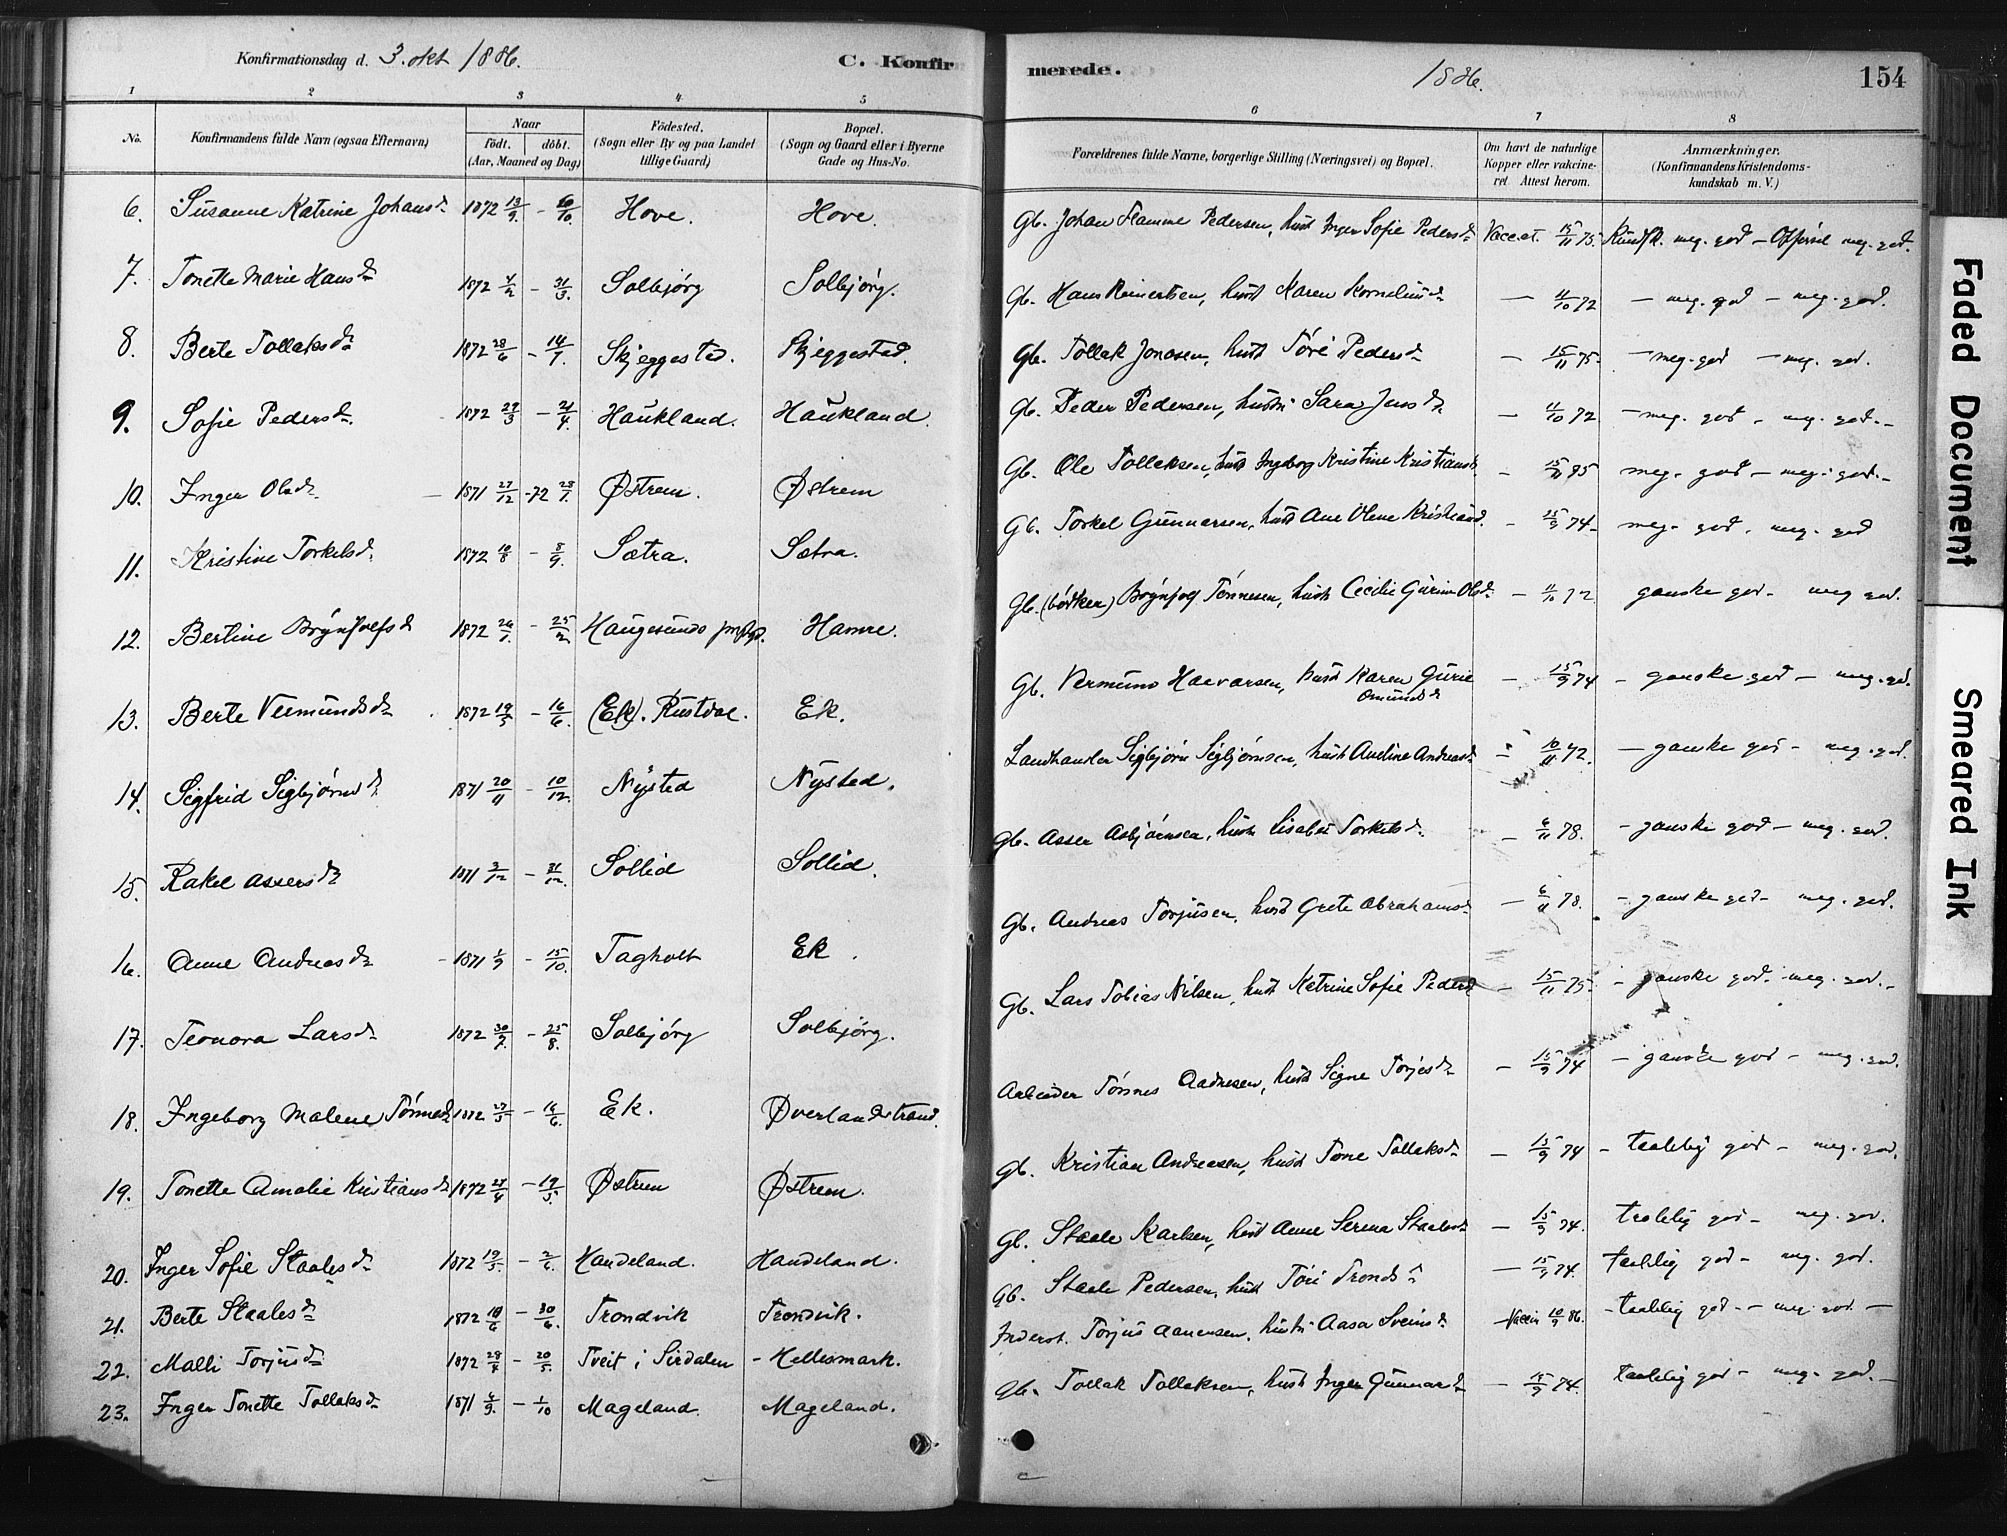 Konfirmationsdag d. 3. okt 1886.
C. Konfir
merede.
1886.
154
1 2 3 4 5 6 7 8
No.
Konfirmandens fulde Navn (ogsaa Efternavn)
Naar
födt. döbt.
(Aar, Maaned og Dag)
Födested.
(Sogn eller By og paa Landet
tillige Gaard)
Bopæl.
(Sogn og Gaard eller i Byerne
Gade og Hus-No.
Forældrenes fulde Navne, borgerlige Stilling (Næringsvei) og Bopæl.
Om havt de naturlige
Kopper eller vakcine-
ret Attest herom.
Anmærkninger.
(Konfirmandens Kristendoms-
kundskab m. V.)
6. Susanne Katrine Johansd. 1872 13/9 - /10. Hove. Hove. Gb. Johan Flamme Pedersen, hust Inger Sofie Pedersd. Vacc.at. 15/11 75. Kundsk. meg. god - Opførsel meg. god.
7. Tonette Marie Hansd. 1872 4/2 - 31/3. Solbjörg Solbjörg. Gb. Hans Reinertsen, hust Karen Korneliusd. - 11/10 72 - meg. god - meg. god.
8. Berte Tollaksd. 1872 28/6 - 14/7. Skjeggestad. Skjeggestad. Gb. Tollak Jonasen, hust Töri Pedersd. - 15/11 75. - meg. god - meg. god.
9. Sofie Pedersd. 1872 29/3 - 21/4. Haukland. Haukland. Gb. Peder Pedersen, hustr Sara Jensd. - 11/10 72 - meg. god - meg. god. -
10. Inger Olsd. 1871 27/12 - 72 28/1. Østrem. Østrem Gb. Ole Tollaksen, hust Ingeborg Kristine Kristiansd. - 15/11 85 meg. god - meg. god. -
11. Kristine Torkelsd. 1872 10/8 - 8/9. Sætra. Sætra. Gb. Torkel Gunnarsen, hust Ane Olene Kristiansd. - 15/9 74 - meg. god. meg. god
12. Bertine Brynjolfsd 1872 26/1. - 25/2 Haugesunds prgld. Hamre. Gb. (bödker) Brynjolf Tönnesen, hust Cecilie Gurine Olsd. - 11/10 72 ganske god - meg god.
13. Berte Vermundsd. 1872 19/5 - 16/6. (Ek). Rustdal. Ek. Gb. Vermund Haavarsen, hust Karen Gurie
Omundsd - 15/9 74 - ganske god - meg. god.
14. Sigfrid Sigbjörnsd. 1871 20/11 - 10/12. Nysted Nysted. Landhandler Sigbjörn Sigbjörnsen, hust Aneline Andreasd. - 10/11 72. - ganske god - meg. god.
15. Rakel Assersd. 1871 3/12 - 31/12. Sollid Sollid. Gb. Asser Asbjörnsen, hust Lisabet Torkelsd. - 6/11 78. - ganske god - meg. god.
16. Anne Andreasd. 1871 1/9 - 15/10. Tagholt Ek. Gb. Andreas Torjusen, hust Grete Abrahamsd. - 6/11 78. - ganske god - meg. god.
17. Teonora Larsd. 1872 30/7. - 25/8. Solbjörg Solbjörg. Gb. Lars Tobias Nilsen, hust Katrine Sofie Pedersd - 15/11 75. - ganske god. meg. god. -
18. Ingeborg Malene Tönnesd 1872 27/5 - 16/6. Ek. Øverlandstrand. Arbeider Tönnes Aadnesen, hust Signe Torjesd. - 15/9 74 - ganske god - meg. god.
19. Tonette Amalie Kristiansd 1872 27/4 - 19/5. Østrem Østrem. Gb. Kristian Andreasen, hust Tone Tollaksd. - 15/9 74 - taalelig god - meg. god.
20. Inger Sofie Staalesd. 1872 19/5. - 2/6. Handeland. Handeland. Gb. Staale Karlsen, hust Anne Serena Staalesd. - 15/9 74. taalelig god - meg. god.
21. Berte Staalesd. 1872 10/6 - 30/6. Trondvik Trondvik. Gb. Staale Pedersen, hust Töri Trondsd - 15/9 74. taalelig god - meg. god.
22. Malli Torjusd. 1872 28/4 - 20/5. Tveit i Sirdalen - Hellesmark. Inderst. Torjus Aanensen, hustr Aasa Sveinsd. - Vaccin 10/9 86. - taalelig god - meg god. -
23. Inger Tonette Tollaksd. 1871 4/9. - 1/10 Mageland. Mageland. Gb. Tollak Tollaksen, hust Inger Gunnarsd. - 15/9 74. taalelig god - meg. god. -
Faded Document
Smeared Ink